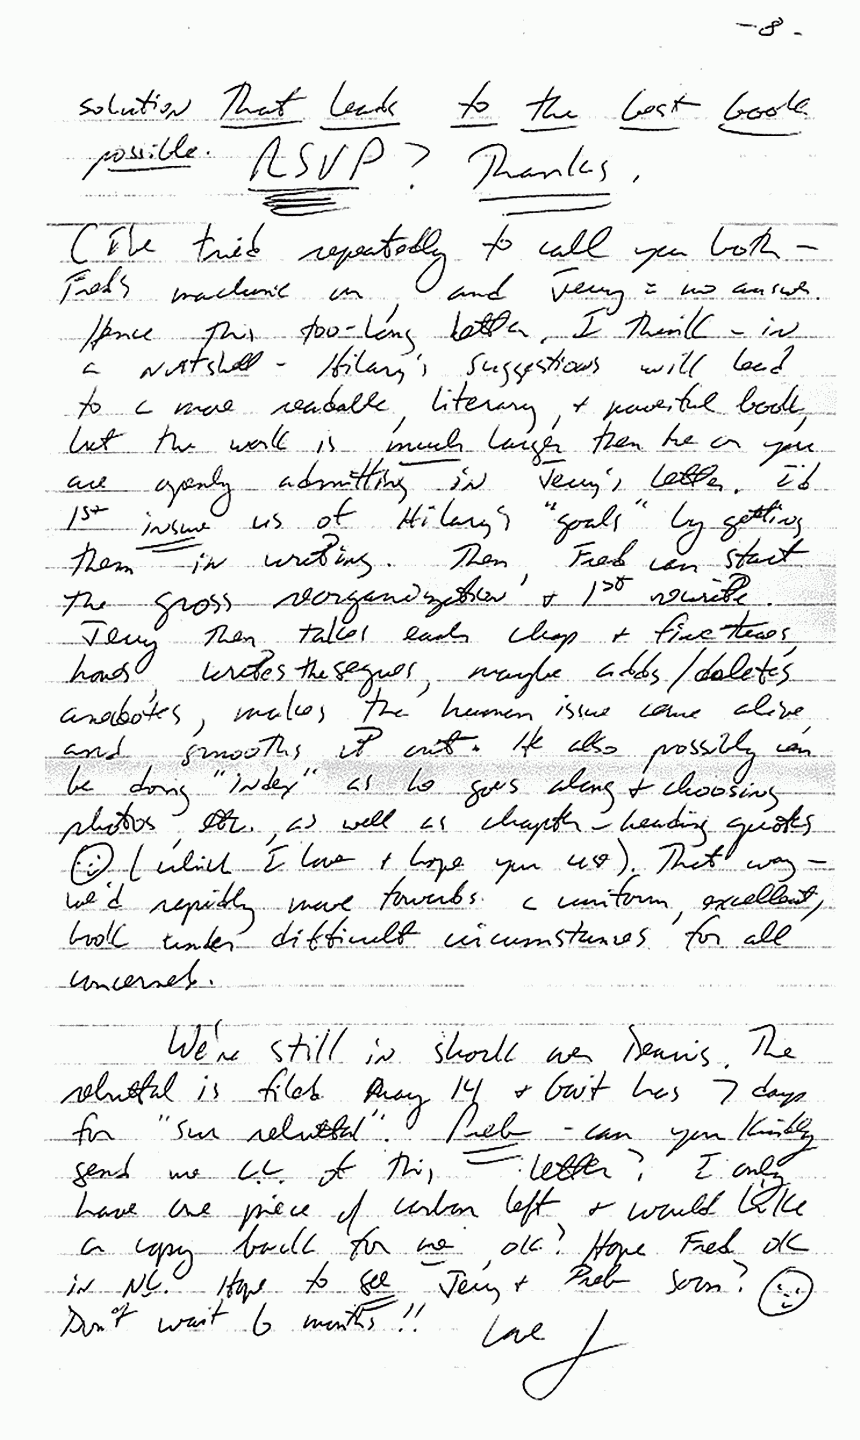 - 8 -
solution That leads to the best book
possible. RSVP? Thanks.
(I've tried repeatedly to call you both –
Fred's machine on, and Jerry = no answer.
Hence this too-long letter. I think – in
a nutshell – Hilary's suggestions will lead
to a more readable, literary, + powerful book,
but the work is much larger then he or you
are openly admitting in Jerry's letter. I'd
1st insure us of Hilary's "goals" by getting
them in writing. Then, Fred can start
the gross reorganization + 1st rewrite.
Jerry then takes each chap + fine tunes,
hones writes the segues, maybe adds/deletes
anecdotes, makes the human issue come alive,
and smooths it out. He also possibly can
be doing "index" as he goes along + choosing
photos, etc., as well as chapter-heading quotes
☺ (which I love + hope you use). That way –
we'd rapidly move towards a uniform, excellent,
book under difficult circumstances for all
concerned.
We're still in shock over Dennis. The
rebuttal is filed May 14 + Gov't has 7 days
for "sur rebuttal". – can you kindly
send me c.c. of this letter? I only
have one piece of carbon left + would like
a copy back for me, ok? Hope Fred ok
in NC. Hope to see Jerry + soon? ☺
Don't wait 6 months!! Love J